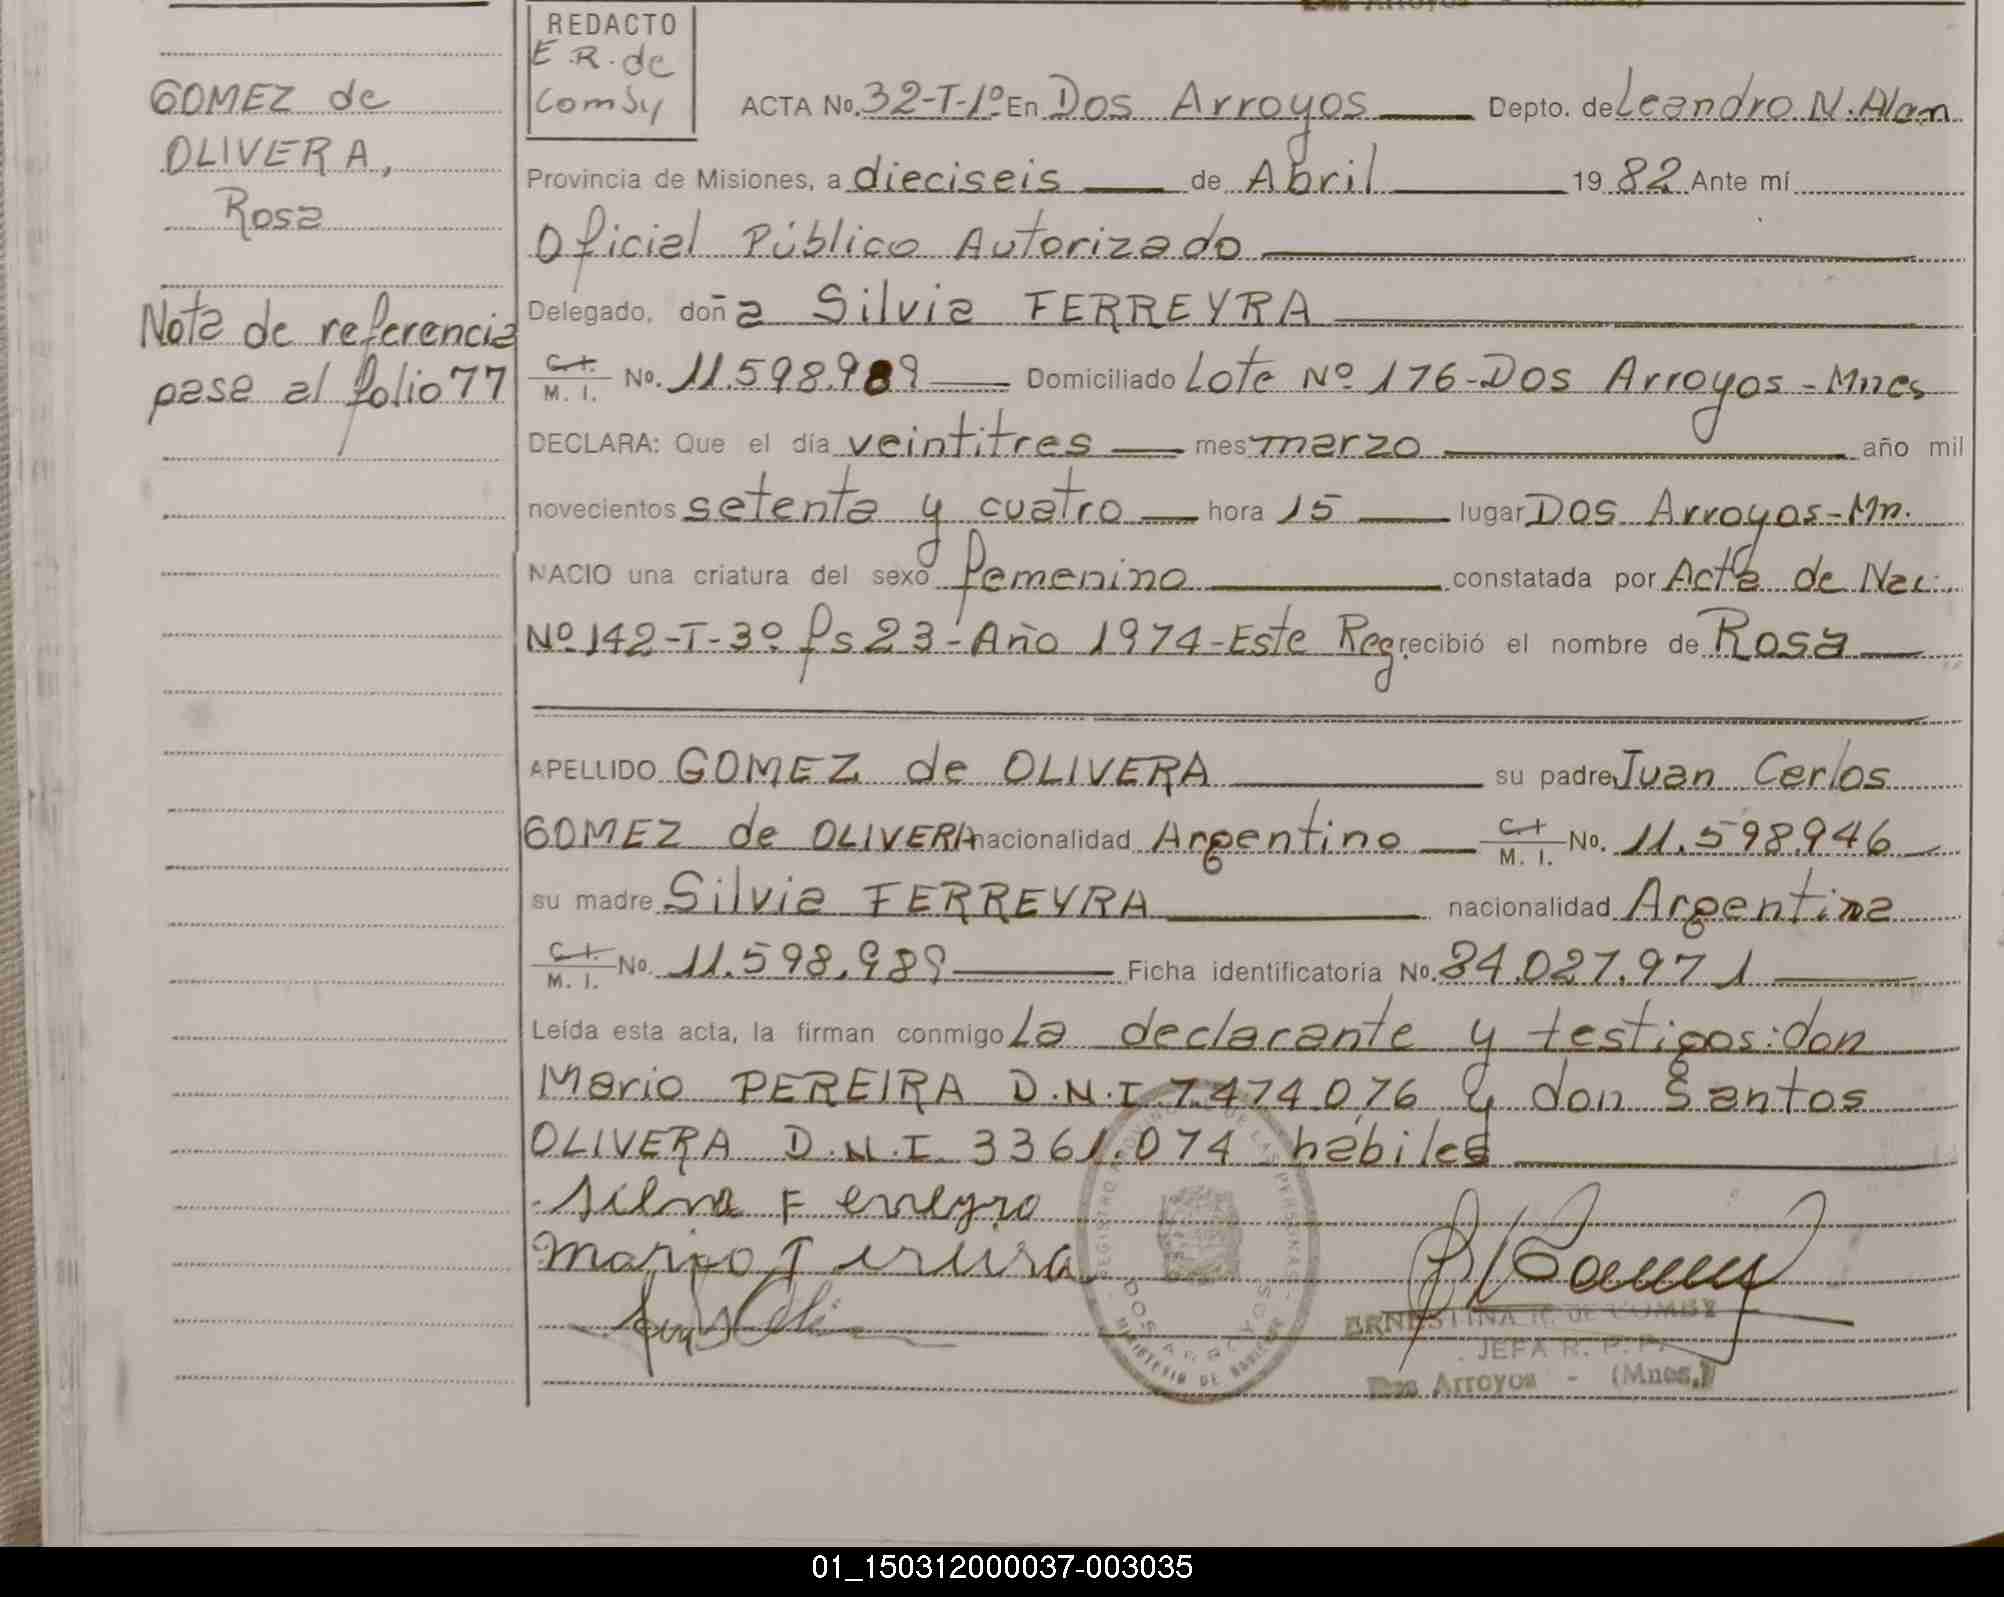 GOMEZ de
OLIVERA,
Rosa
Nota de referencia
pasa al folio 77
REDACTO
E.R. de
Comby
ACTA No. 32-T-1º En Dos Arroyos Depto. de Leandro N. Alem
Provincia de Misiones, a dieciseis de Abril 1982 Ante mí
Oficial Público Autorizado
Delegado, doña Silvia FERREYRA
C.I. M. I. No. 11.598.989 Domiciliado Lote Nº 176-Dos Arroyos-Mnes
DECLARA: Que el día veintitres mes marzo año mil
novecientos setenta y cuatro hora 15 lugar Dos Arroyos-Mn.
NACIO una criatura del sexo femenino constatada por Acta de Nac.
Nº 142-T-3º fs 23-Año 1974-Este Reg. recibió el nombre de Rosa
APELLIDO GOMEZ de OLIVERA su padre Juan Carlos
GOMEZ de OLIVERA nacionalidad Argentino C.I. M. I. No. 11.598.946
su madre Silvia FERREYRA nacionalidad Argentina
C.I. M. I. No. 11.598.989 Ficha identificatoria No. 24.027.971
Leída esta acta, la firman conmigo La declarante y testigos: don
Mario PEREIRA D.N.I 7.474.076 y don Santos
OLIVERA D.N.I. 3361.074 hábiles
Silvia Ferreyra
Mario Pereira
ERNESTINA R. DE COMBY
JEFA R. P. P.
Dos Arroyos - (Mnes.)
DOS ARROYOS
01_150312000037-003035